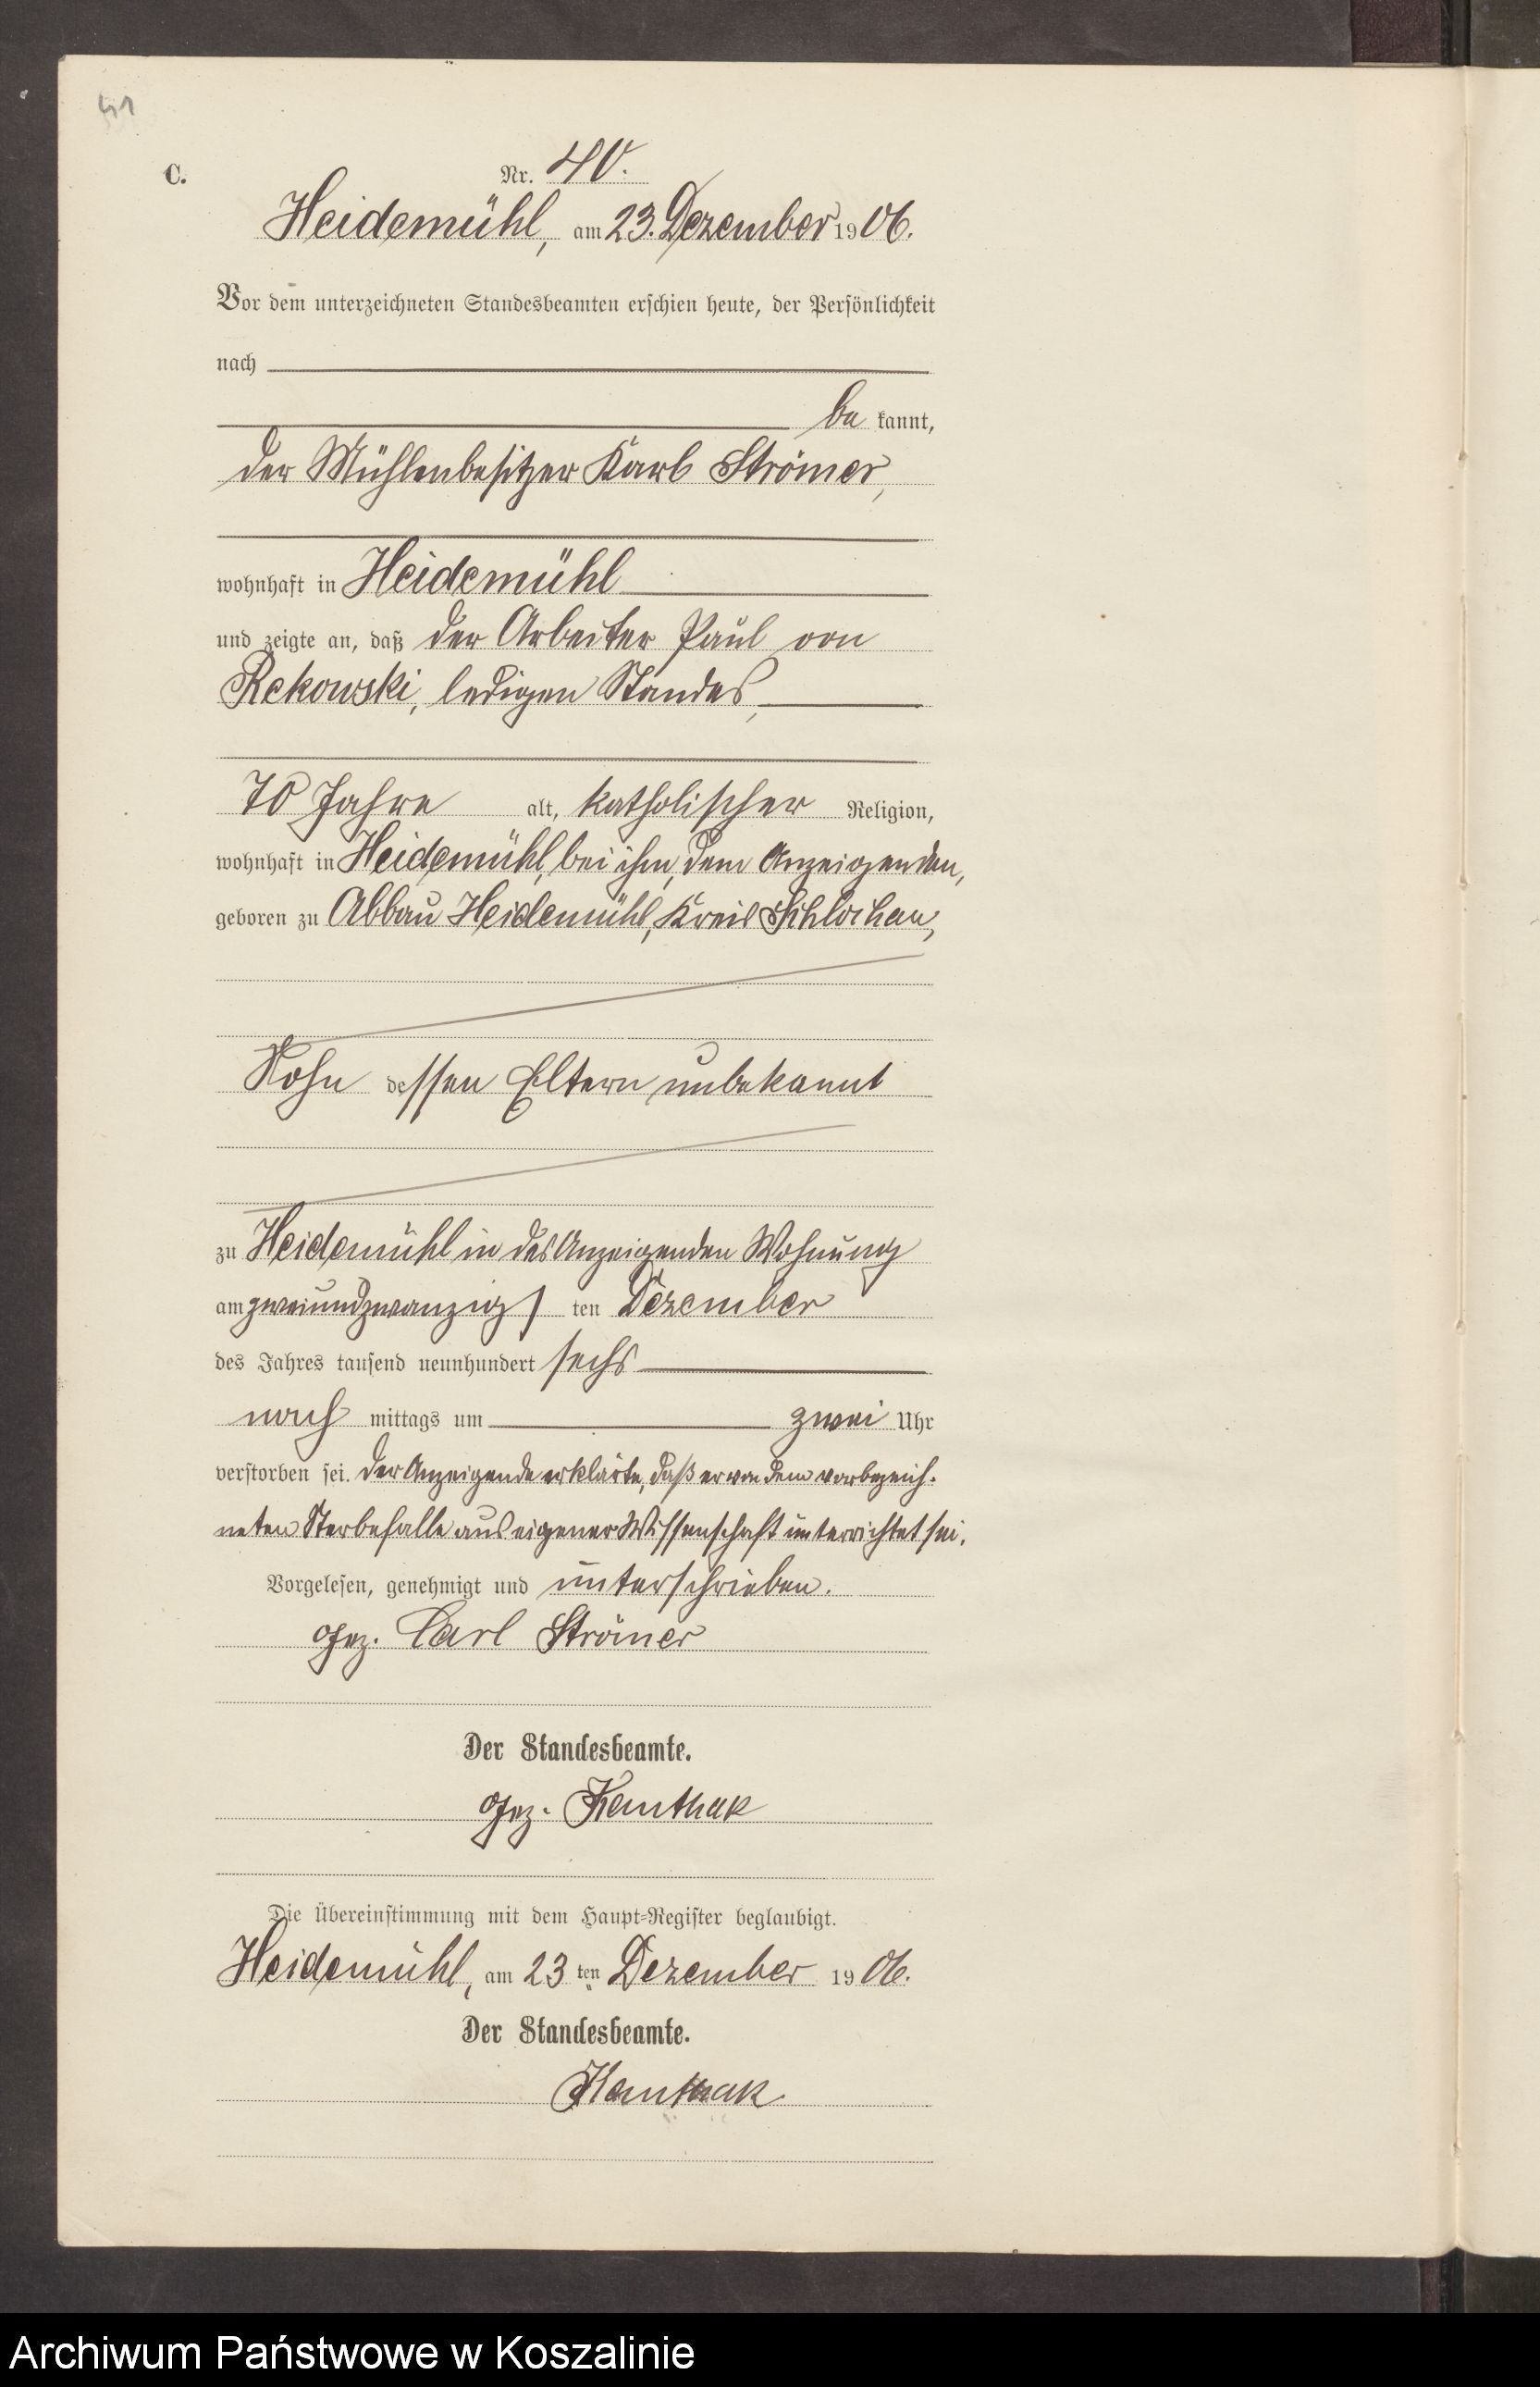 41
C.
Nr. 40.
Heidemühl, am 23. Dezember 1906.
Vor dem unterzeichneten Standesbeamten erschien heute, der Persönlichkeit
nach
be kannt,
der Mühlenbesitzer Karl Strömer,
wohnhaft in Heidemühl
und zeigte an, daß der Arbeiter Paul von
Rekowski, ledigen Standes,
70 Jahre alt, katholischer Religion,
wohnhaft in Heidemühl, bei ihm, dem Anzeigenden,
geboren zu Abbau Heidemühl, Kreis Schlochau,
Sohn dessen Eltern unbekannt
zu Heidemühl in des Anzeigenden Wohnung
am zweiundzwanzigs ten Dezember
des Jahres tausend neunhundert sechs
nach mittags um zwei Uhr
verstorben sei. Der Anzeigende erklärte, daß er von dem vorbezeich-
neten Sterbefalle aus eigener Wissenschaft unterrichtet sei.
Vorgelesen, genehmigt und unterschrieben.
gez. Carl Strömer
Der Standesbeamte.
gez. Kemthak
Die Übereinstimmung mit dem Haupt-Register beglaubigt.
Heidemühl, am 23 ten Dezember 1906.
Der Standesbeamte.
Kemthak
Archiwum Państwowe w Koszalinie